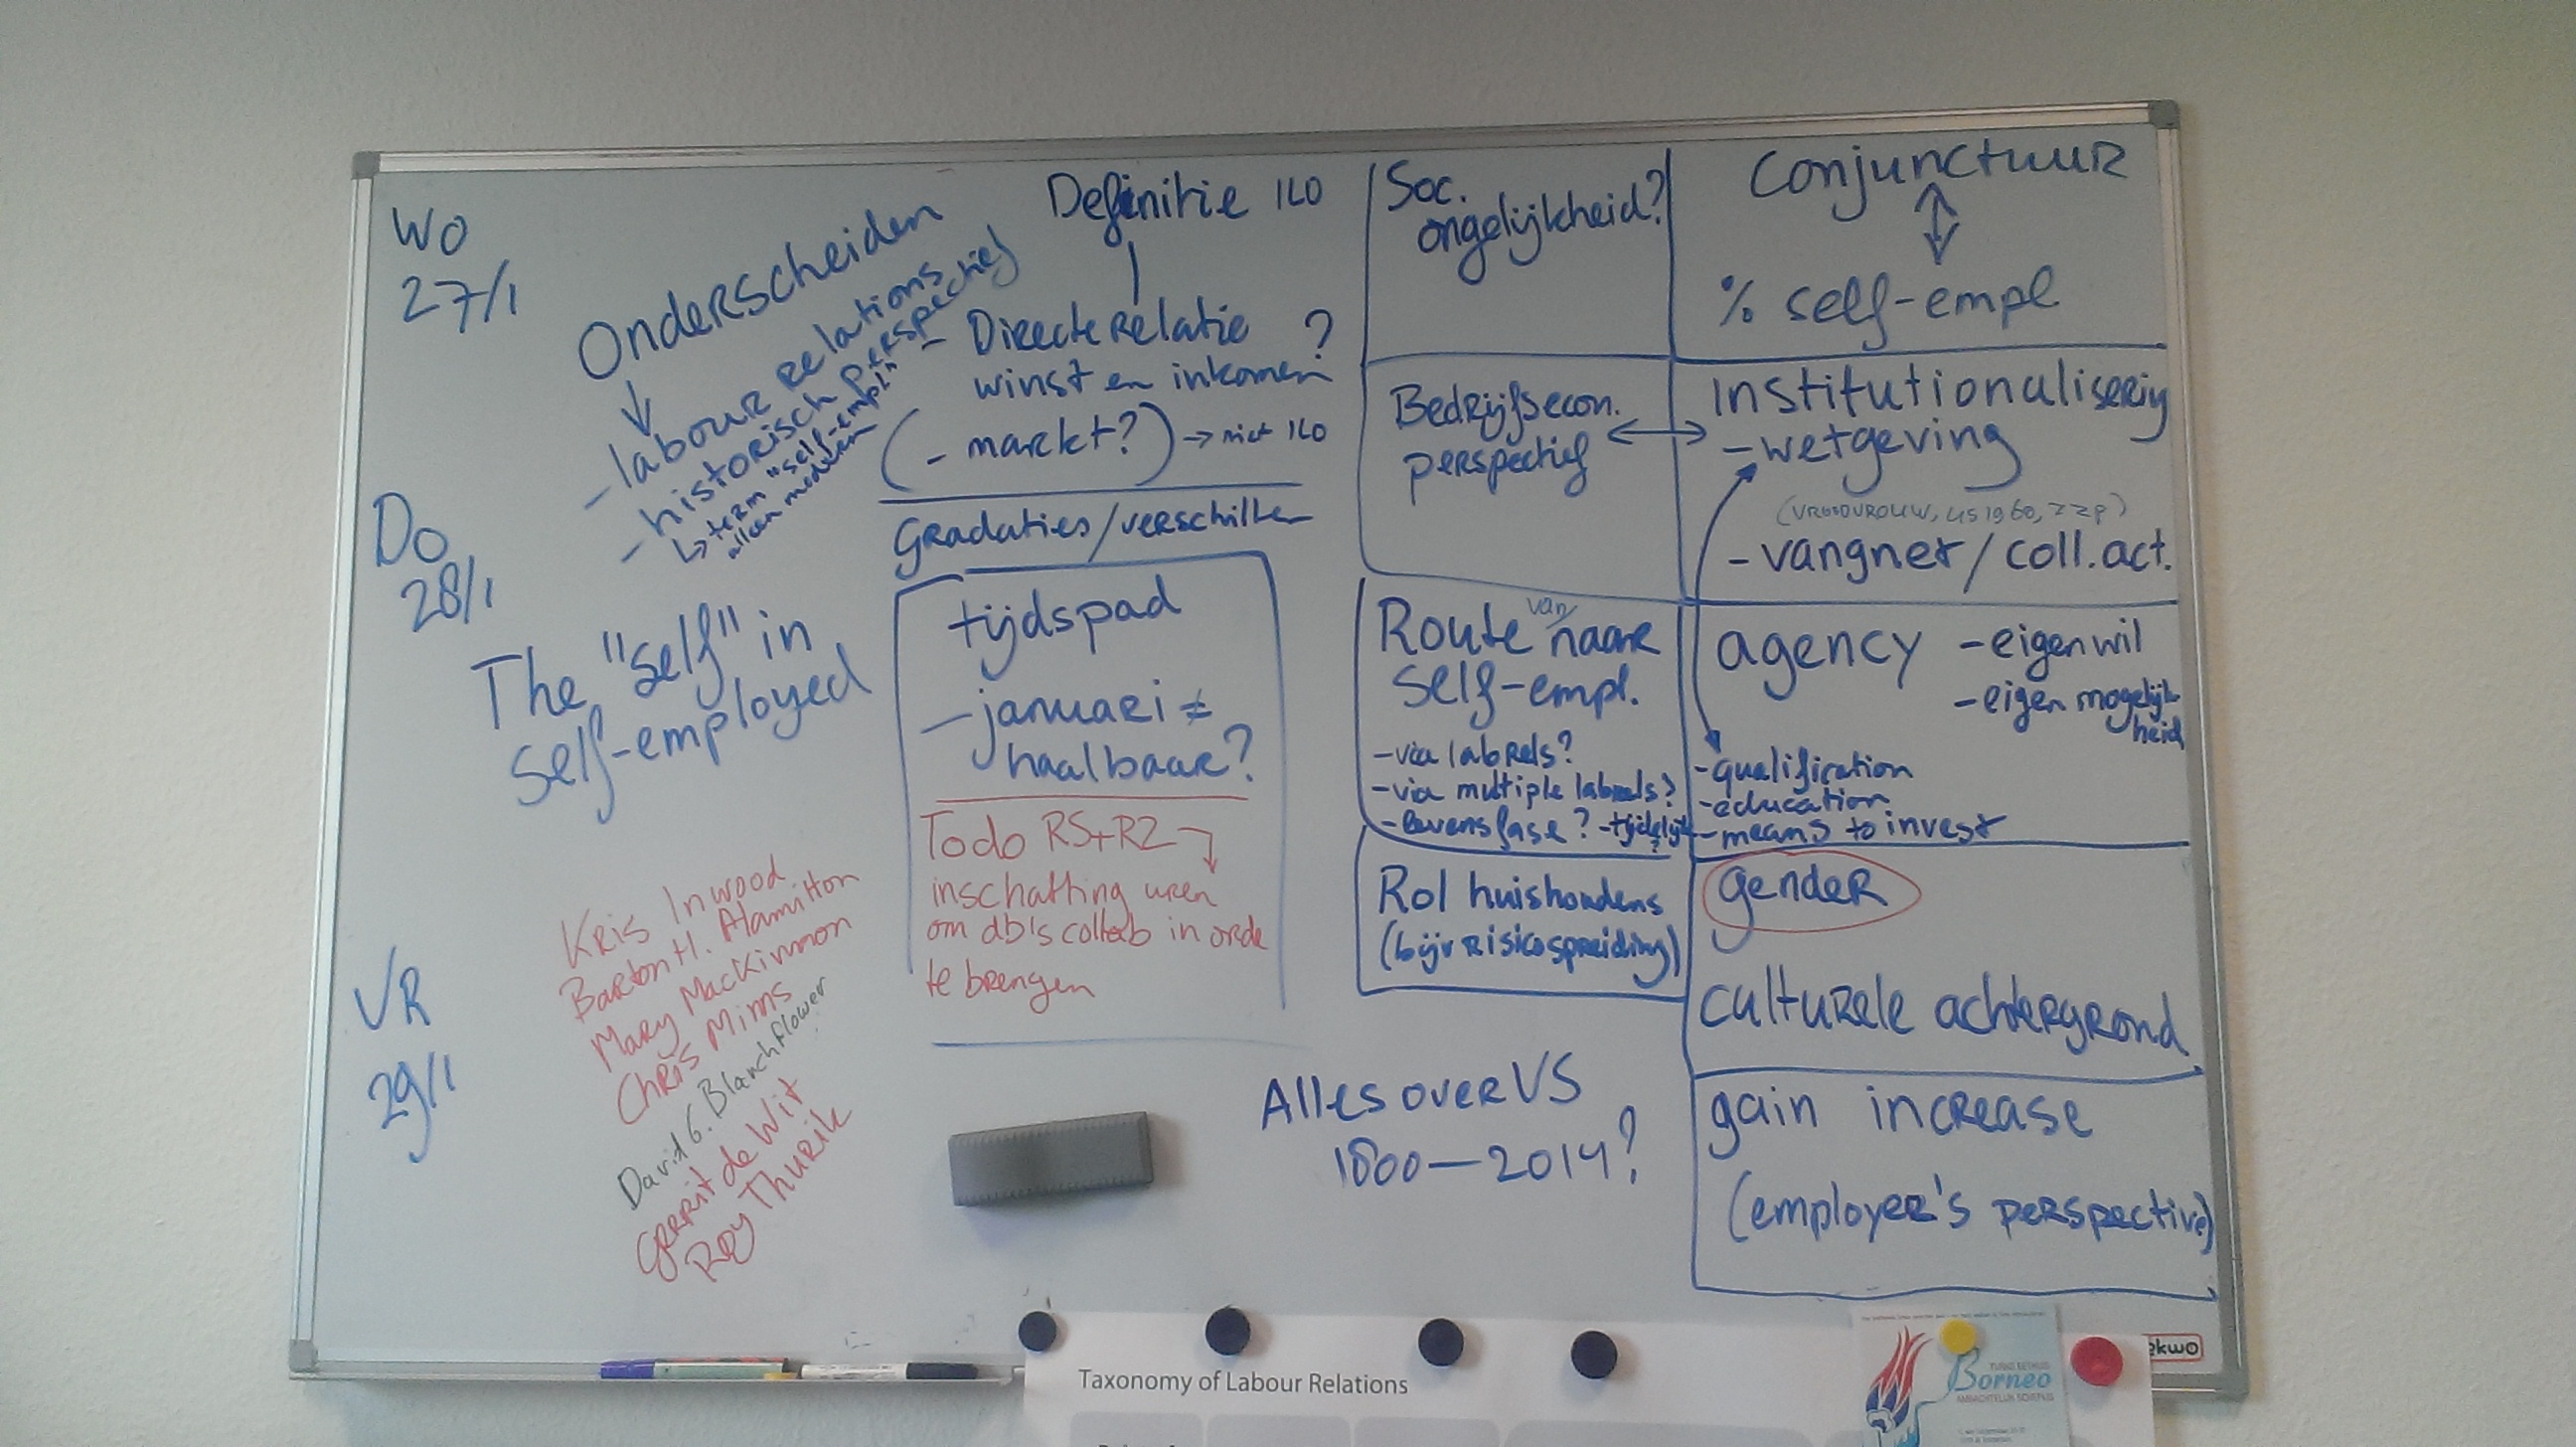 WO
27/1
Do
28/1
VR
29/1
Onderscheiden
- labour relations
- historisch perspectief
↳ term "self-empl."
alleen modern
The "self" in
self-employed
Kris Inwood
Barton H. Hamilton
Mary MacKinnon
Chris Mims
David G. Blanchflower
Gerrit de Wit
Roy Thurik
Definitie ILO
- Directe relatie ?
winst en inkomen
(- markt?) → niet ILO
Gradaties/verschillen
tijdspad
- januari ≠
haalbaar?
Todo RS+RZ
inschatting uren
om db's collab in orde
te brengen
Soc.
ongelijkheid?
Bedrijfsecon. ↔
perspectief
Route van/naar
self-empl.
- via labrels?
- via multiple labrels?
- levensfase? - tijdelijk?
Rol huishoudens
(bijv risicospreiding)
Alles over VS
1800—2014?
Conjunctuur
↕
% self-empl
Institutionalisering
- wetgeving
US 1960, ZZP)
- vangnet/coll.act.
agency - eigen wil
- eigen mogelijk
heid
- qualification
- education
- means to invest
gender
culturele achtergrond
gain increase
(employer's perspective)
Taxonomy of Labour Relations
Borneo